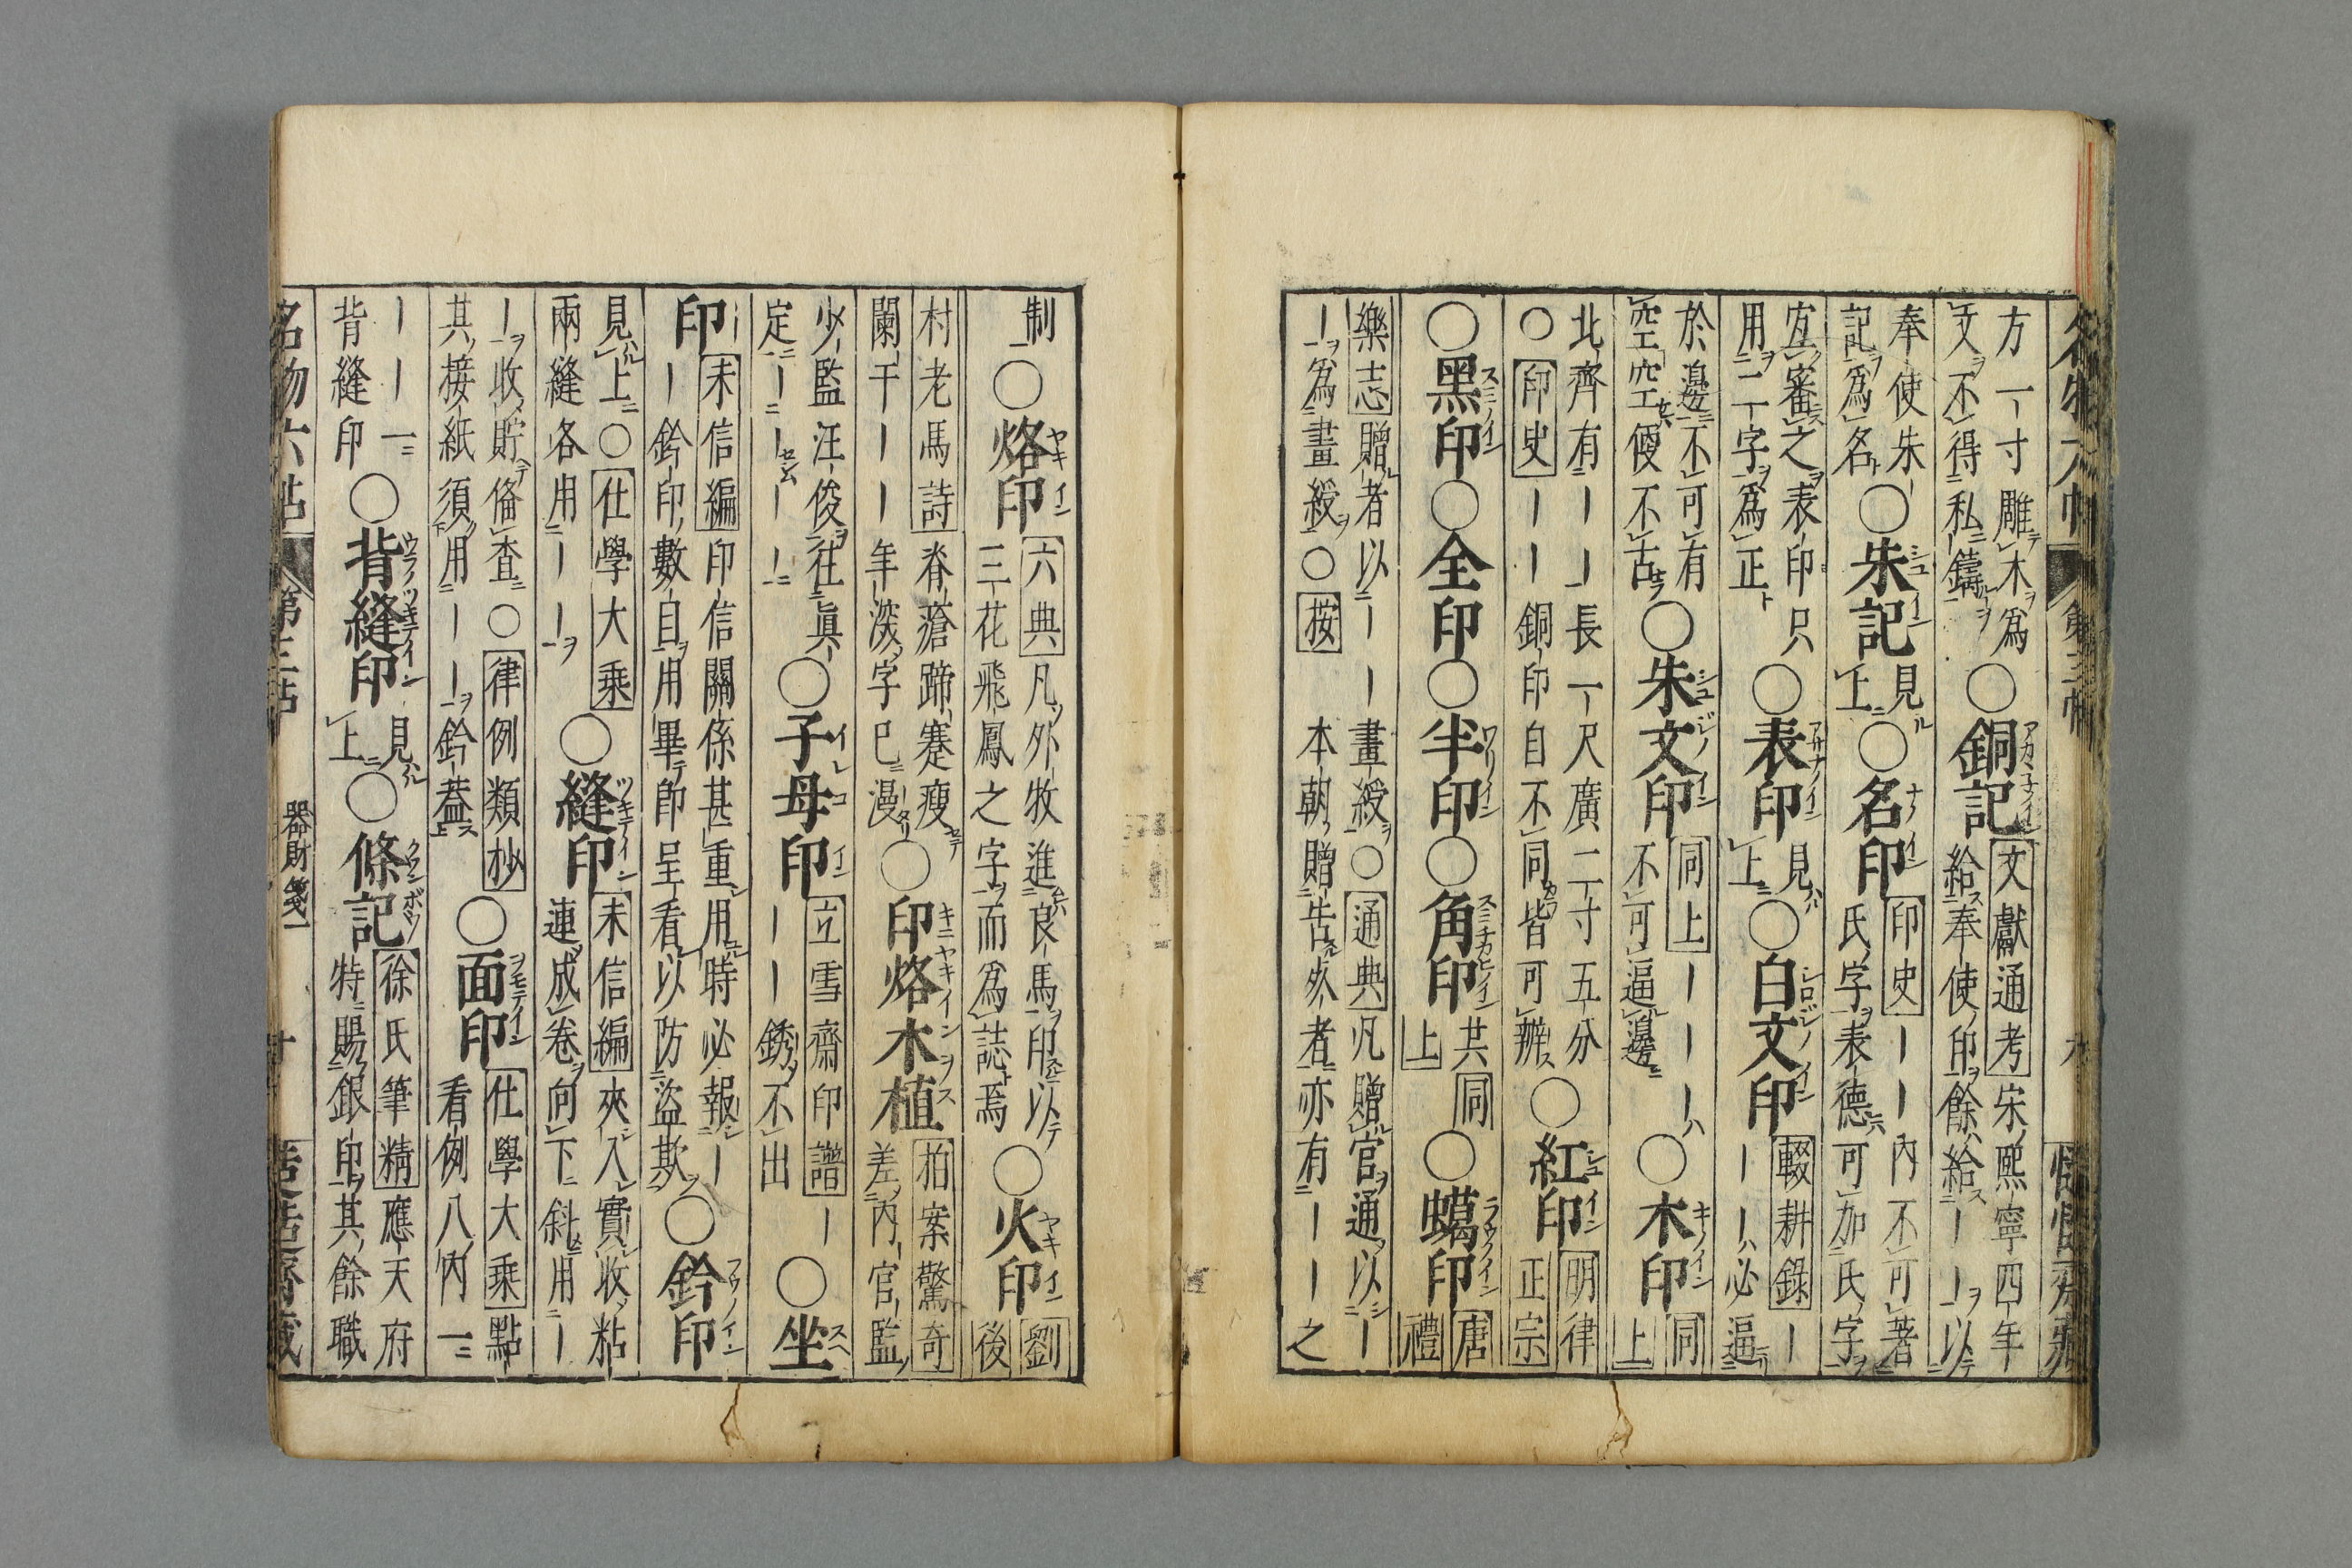 方一寸雕木爲
文不得私鑄
○銅記
文獻通考宋熙寧四年
給奉使印餘給ーー以
奉使朱
記爲名
○朱記
見
上
○名印
印史ーー内不可著
氏字表德可加氏字
宜審之表印只
用二字爲正
○表印
見
上
○白文印
輟耕錄ー
ーー必逼
於邊不可有
空空便不古
○朱文印
同上ーーー
不可逼邊
○木印
同
上
北齊有ーー長一尺廣二寸五分
○印史ーー銅印自不同皆可辨
○紅印
明律
正宗
○黑印○全印○半印○角印
共同
上
○蠟印
唐
禮
樂志贈者以ーー畫綬○通典凡贈官通以ー
ー爲畫綬○按本朝贈告㱕者亦有ーー之
制
○烙印
六典凡外牧進良馬印以
三花飛鳳之字而爲誌焉
○火印
劉
後
村老馬詩脊瘡蹄蹇瘦
闌干ーー年深字已漫
○印烙木植
柏案驚奇
差内官監
少監汪俊往眞
定ーーーー
○子母印
立雪齋印譜ー
ーー銹不出
○坐
印
未信編印信關係甚重用時必報ー
ー鈐印數目用畢卽呈看以防盜欺
○鈐印
見上○仕學大乘
兩縫各用ーー
○縫印
未信編夾入實收粘
連成卷向下斜用ー
ー收貯俻查○律例類抄
其接紙須用ーー鈐蓋
○面印
仕學大乘點
看例八内一
ーー一
背縫印
○背縫印
見
上
○條記
徐氏筆精應天府
特賜銀印其餘職
名物六帖
第三帖
器財箋一
十